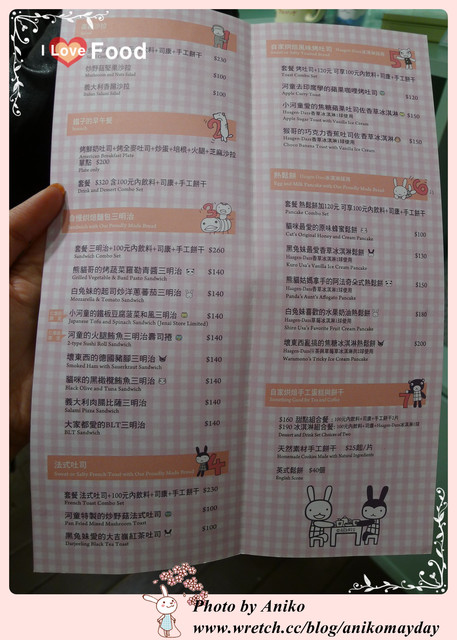 I Love Food
$230
炒野菇堅果沙拉 $100
Mushroom and Nuts Salad
義大利香腸沙拉 $100
Italian Salami Salad
2
烤鮮奶吐司+烤全麥吐司+炒蛋+培根+火腿+芝麻沙拉
American Breakfast Plate
單點 $200
Plate only
套餐 $320 含100元內飲料+司康+手工餅干
Drink and Dessert Combo Set
套餐 三明治+100元內飲料+司康+手工餅干 $260
Sandwich Combo Set
熊貓哥的烤蔬菜羅勒青醬三明治 $140
Grilled Vegetable & Basil Pasto Sandwich
白兔妹的起司炒洋蔥蕃茄三明治 $140
Mozzarella & Tomato Sandwich
小河童的鐵板豆腐菠菜和風三明治 $140
Japanese Tofu and Spinach Sandwich
河童的火腿鮪魚三明治壽司捲 $140
2-type Sushi Roll Sandwich
壞東西的德國豬腳三明治 $140
Smoked Ham with Sauerkraut Sandwich
貓咪的黑橄欖鮪魚三明治 $140
Black Olive and Tuna Sandwich
義大利肉腸比薩三明治 $140
Salami Pizza Sandwich
大家都愛的BLT三明治 $140
BLT Sandwich
法式吐司
4
套餐 法式吐司+100元內飲料+司康+手工餅干 $230
French Toast Combo Set
河童特製的炒野菇法式吐司 $100
Pan Fried Mixed Mushroom Toast
黑兔妹愛的大吉嶺紅茶吐司 $100
Darjeeling Black Tea Toast
5
套餐 烤吐司+120元 可享100元內飲料+司康+手工餅干
Toast Combo Set
河童去印度學的蘋果咖哩烤吐司 $130
Apple Curry Toast
小河童愛的焦糖蘋果吐司佐香草冰淇淋 $150
Häagen-Dazs香草冰淇淋1球使用
Apple Sugar Toast with Vanilla Ice Cream
猴哥的巧克力香蕉吐司佐香草冰淇淋 $150
Häagen-Dazs香草冰淇淋1球使用
熱鬆餅
6
套餐 熱鬆餅加120元 可享100元內飲料+司康+手工餅干
Pancake Combo Set
貓咪最愛的原味蜂蜜鬆餅 $100
Cat's Original Honey and Cream Pancake
黑兔妹最愛香草冰淇淋鬆餅 $130
Häagen-Dazs香草冰淇淋1球使用
Kuro Usa's Vanilla Ice Cream Pancake
熊貓姑媽拿手的阿法奇朵式熱鬆餅 $150
Häagen-Dazs香草冰淇淋1球使用
Panda's Aunt's Affogato Pancake
白兔妹喜歡的水果奶油熱鬆餅 $180
Shiro Usa's Favorite Fruit Cream Pancake
壞東西亂搞的焦糖冰淇淋熱鬆餅 $200
Warumono's Tricky Ice Cream Pancake
自家烘焙手工蛋糕與餅干
7
$160 甜點組合餐：
$190 冰淇淋組合餐：
Dessert and Drink Set Choices of Two
天然素材手工餅干 $25起/片
Homemade Cookies Made with Natural Ingredients
英式鬆餅 $40個
English Scone
Photo by Aniko
www.wretch.cc/blog/anikomayday